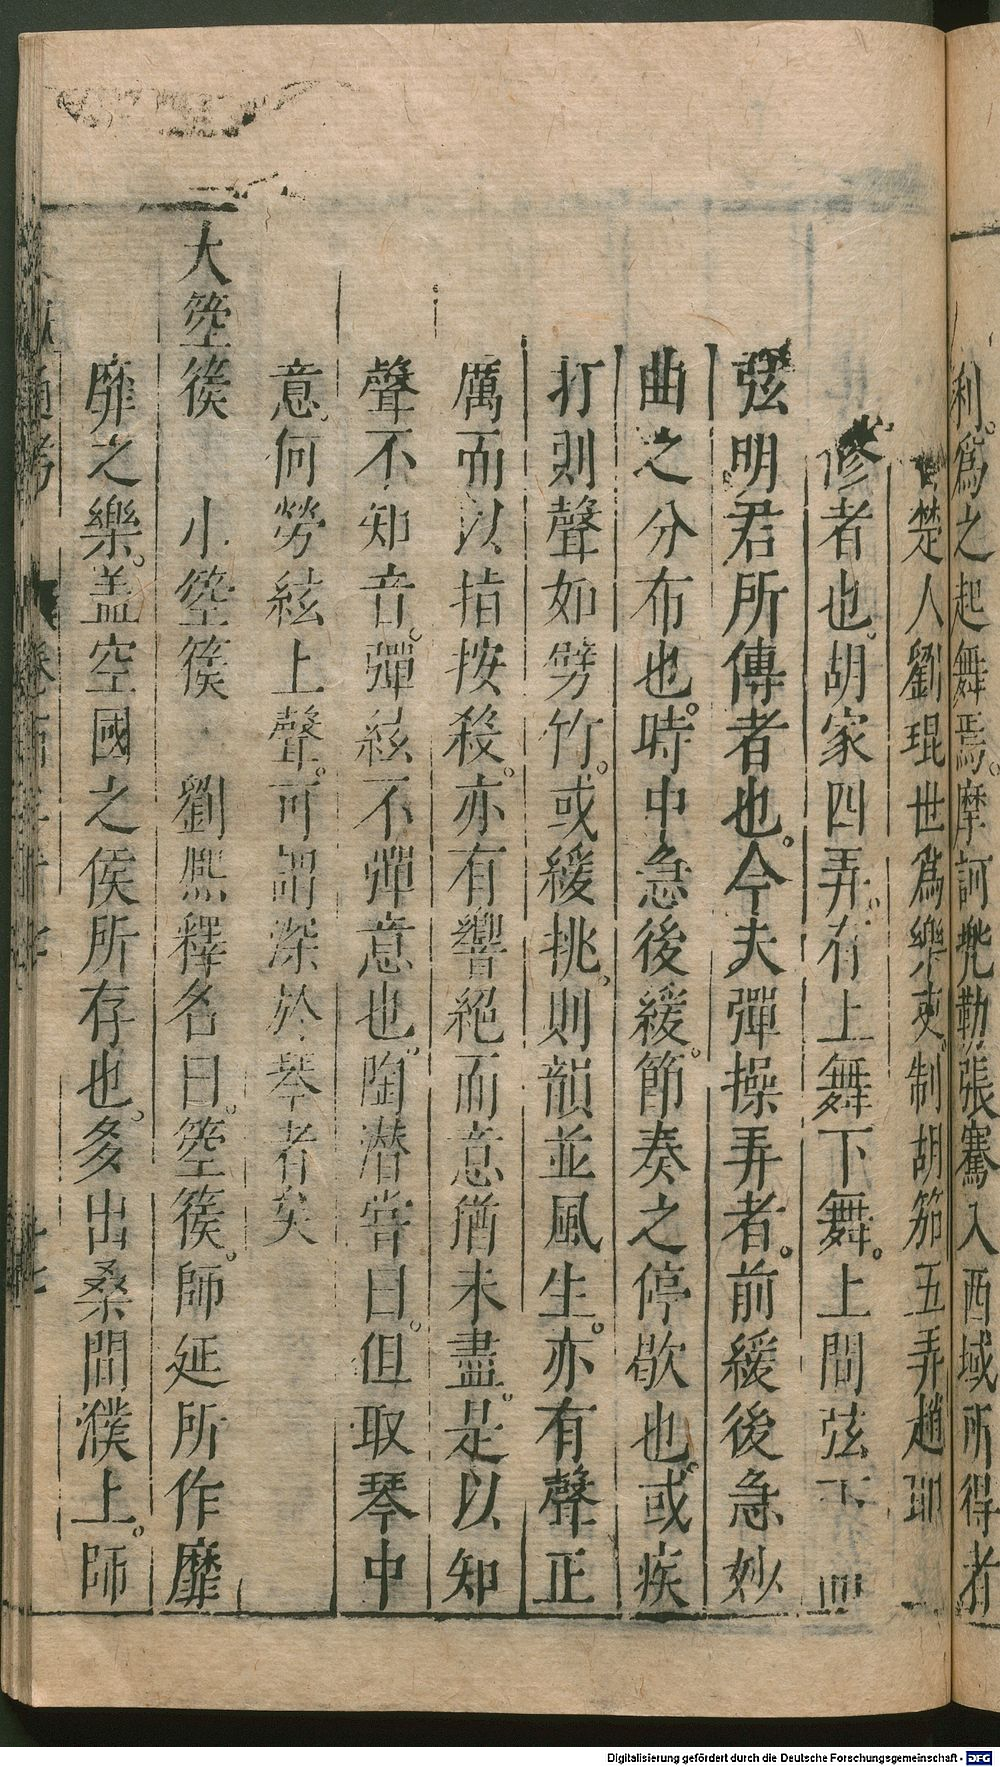 利。爲之起舞焉。摩訶兜勒張騫入西域所得者
楚人劉琨世爲樂吏。制胡笳五弄趙耶
修者也。胡家四弄。有上舞下舞。上間弦下
弦明君所傳者也。今夫彈操弄者。前緩後急妙
曲之分布也。時中急後緩。節奏之停歇也。或疾
打則聲如劈竹。或緩挑。則韻並風生。亦有聲正
厲而以指按殺。亦有響絕而意猶未盡。是以知
聲不知音。彈絃不彈意也。陶潛嘗曰。但取琴中
意。何勞絃上聲。可謂深於琴者矣
大箜篌 小箜篌 劉熙釋名曰。箜篌。師延所作靡
靡之樂。盖空國之侯所存也。多出桑間濮上。師
通考 卷
Digitalisierung gefördert durch die Deutsche Forschungsgemeinschaft - DFG